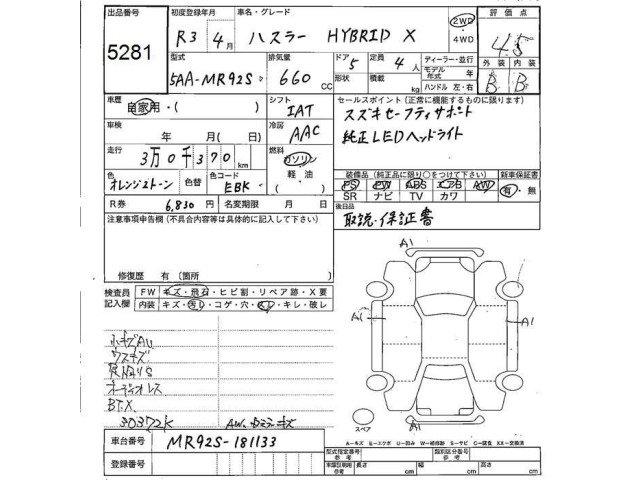 出品番号
5281
初度登録年月
R3 4月
車名・グレード
ハスラー HYBRID X
2WD
・4WD
評価点
4.5
外装 内装
B B
型式
5AA-MR92S
排気量
660 CC
ドア 5
形状
定員 4 人
積載 kg
ディーラー・並行
モデル年式 年
ハンドル 左・右
車歴
自家用・( )
シフト
IAT
セールスポイント(正常に機能するものに限ります)
スズキセーフティサポート
純正LEDヘッドライト
車検
年 月( 日)
冷房
AAC
走行
3万0千370 km
燃料
ガソリン
軽油
( )
色
オレンジストーン
色替
色コード
EBK
装備品(純正品に限り○をつけて下さい)
新車保証書
PS PW ABS エアB AW
SR ナビ TV カワ
有・無
R券 6,830 円
名変期限 月 日
後日品
取説・保証書
注意事項申告欄(不具合内容等は具体的に記入して下さい)
修復歴 有(箇所 )
検査員
記入欄
FW キズ・飛石・ヒビ割・リペア跡・X要
内装 キズ・汚レ・コゲ・穴・スレ・キレ・破レ
小キズAU
ウスキズ
オーディオレス
BT.X
30372K
A1
A1
A1
A1
スペア
A=キズ E=エクボ U=凹み W=補修跡 S=サビ C=腐食 XX=交換済
車台番号
MR92S-181133
登録番号
型式指定番号
参考
類別区分番号
参考
車両証明用
参考
長さ cm
幅 cm
高さ cm